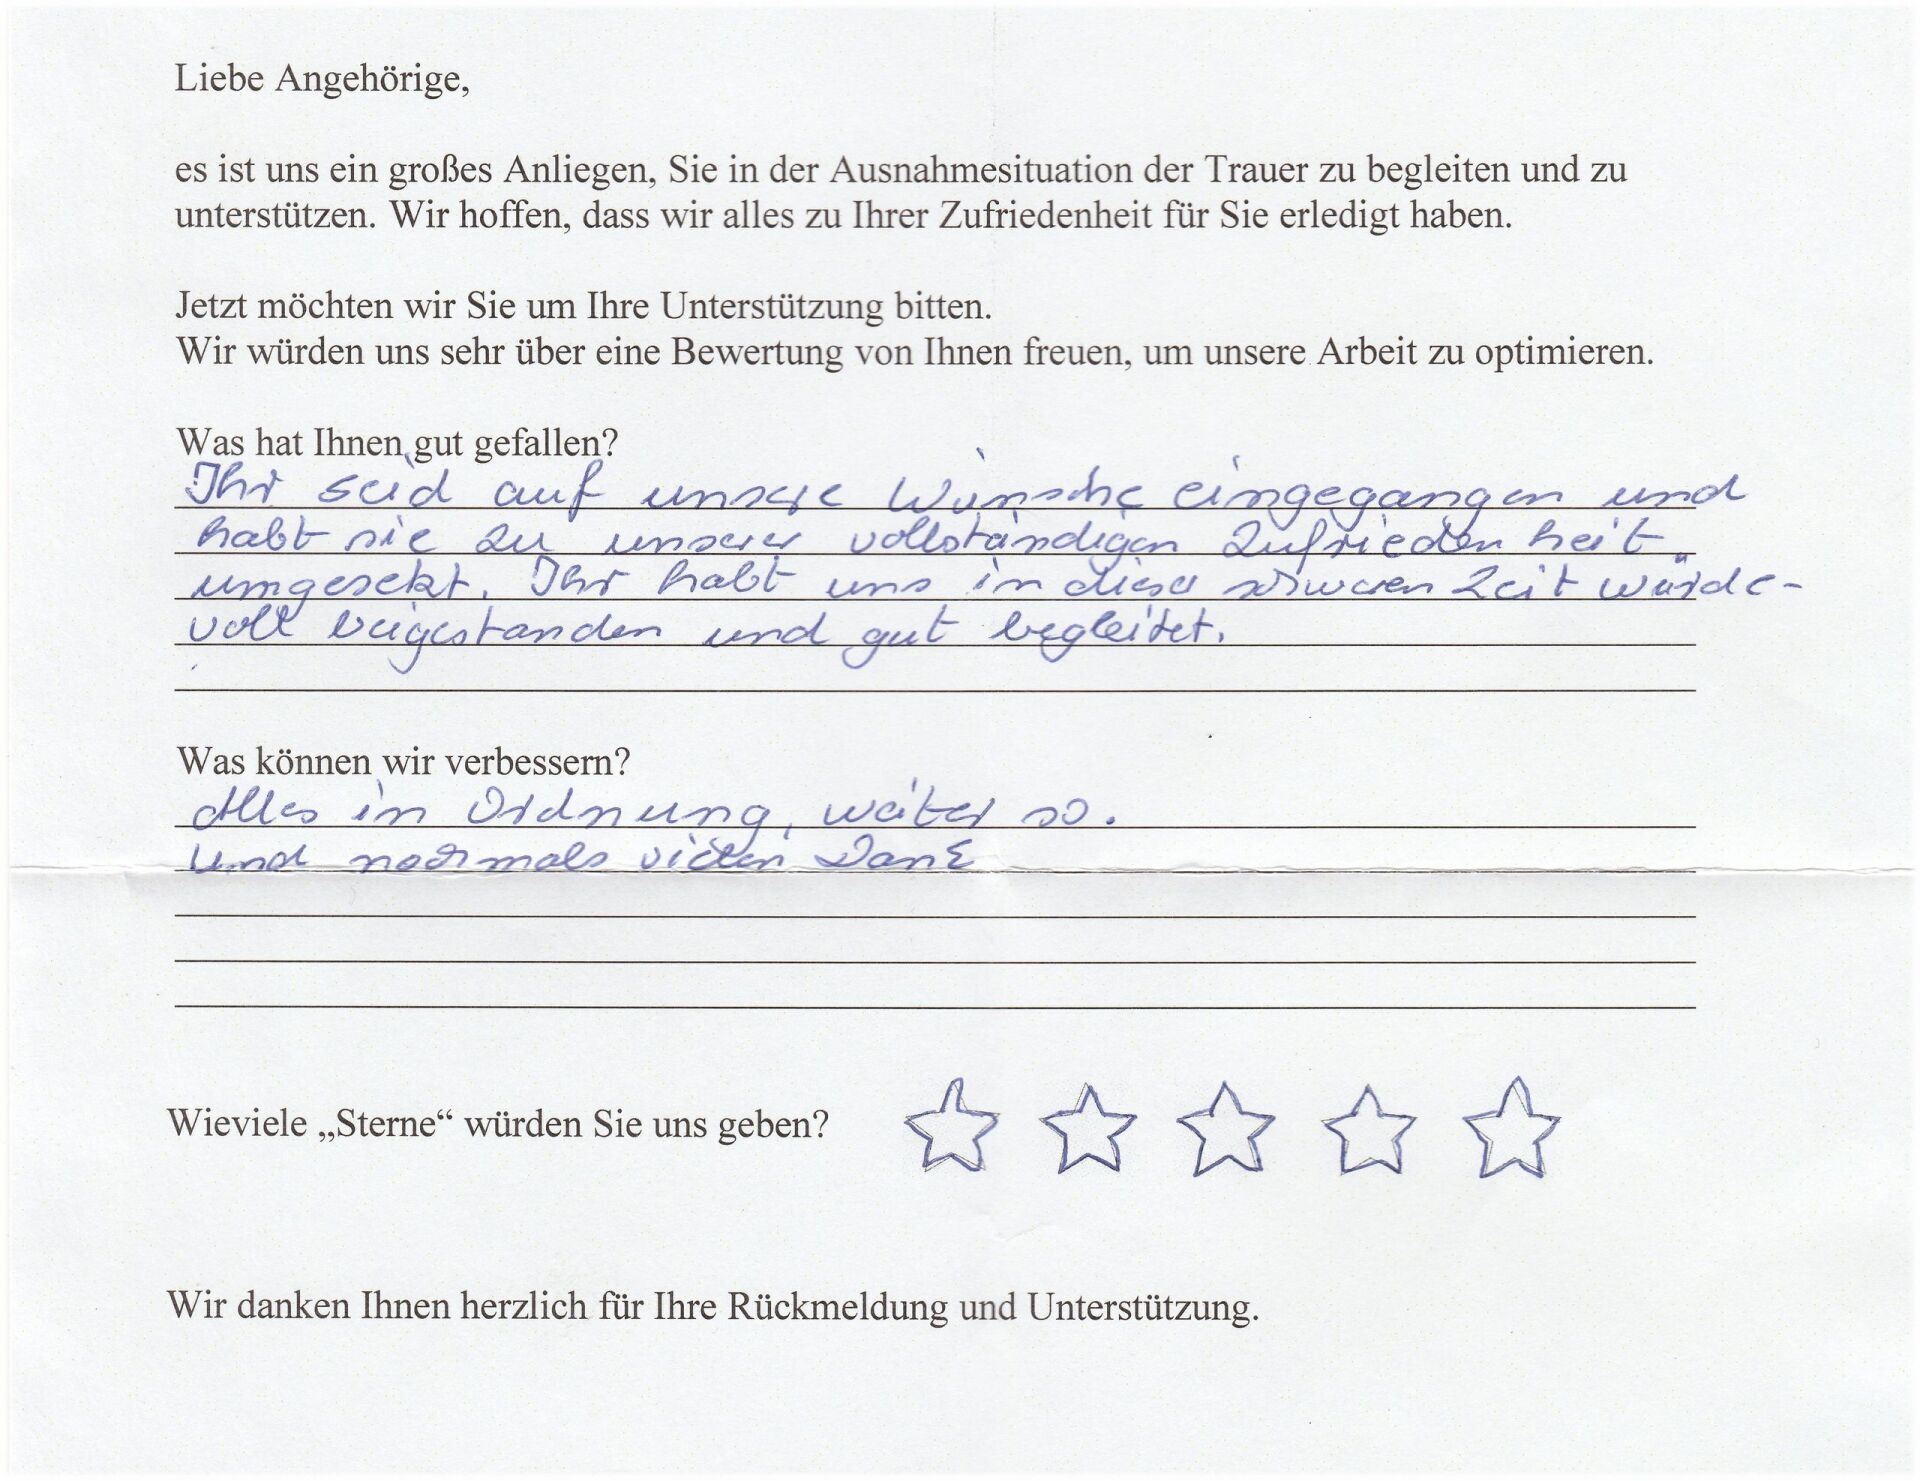 Liebe Angehörige,
es ist uns ein großes Anliegen, Sie in der Ausnahmesituation der Trauer zu begleiten und zu
unterstützen. Wir hoffen, dass wir alles zu Ihrer Zufriedenheit für Sie erledigt haben.
Jetzt möchten wir Sie um Ihre Unterstützung bitten.
Wir würden uns sehr über eine Bewertung von Ihnen freuen, um unsere Arbeit zu optimieren.
Was hat Ihnen gut gefallen?
Ihr seid auf unsere Wünsche eingegangen und
habt sie zu unserer vollständigen Zufriedenheit
umgesetzt. Ihr habt uns in dieser schweren Zeit würde-
voll beigestanden und gut begleitet.
Was können wir verbessern?
Alles in Ordnung, weiter so.
Und nochmals vielen Dank
Wieviele „Sterne“ würden Sie uns geben?
Wir danken Ihnen herzlich für Ihre Rückmeldung und Unterstützung.